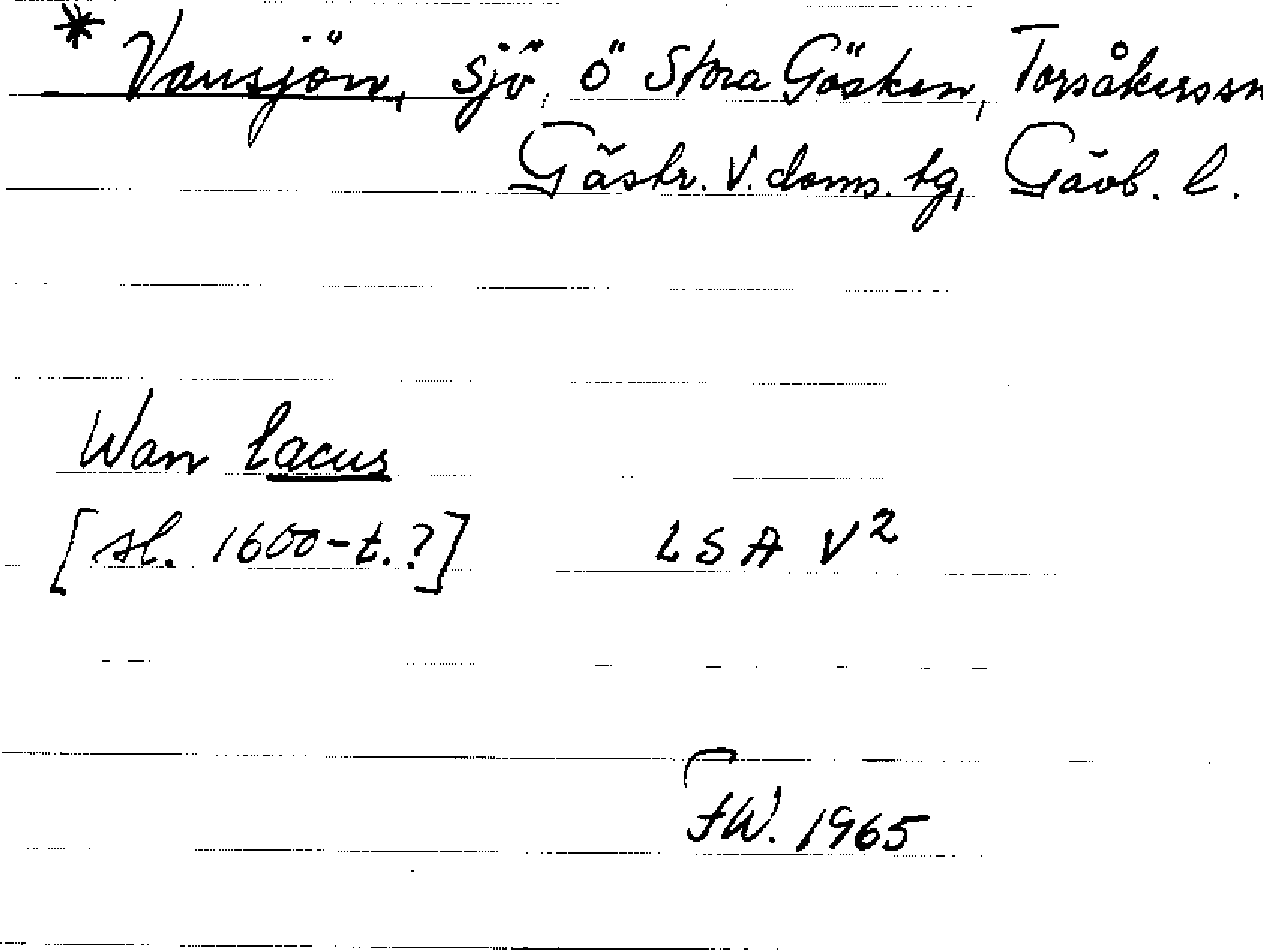 * Vansjön, sjö, ö Stora Gösken, Torsåkerssn
Gästr. V. doms. tg, Gävb. l.
Wan lacus
[sl. 1600-t.?] LSA V2
FW. 1965